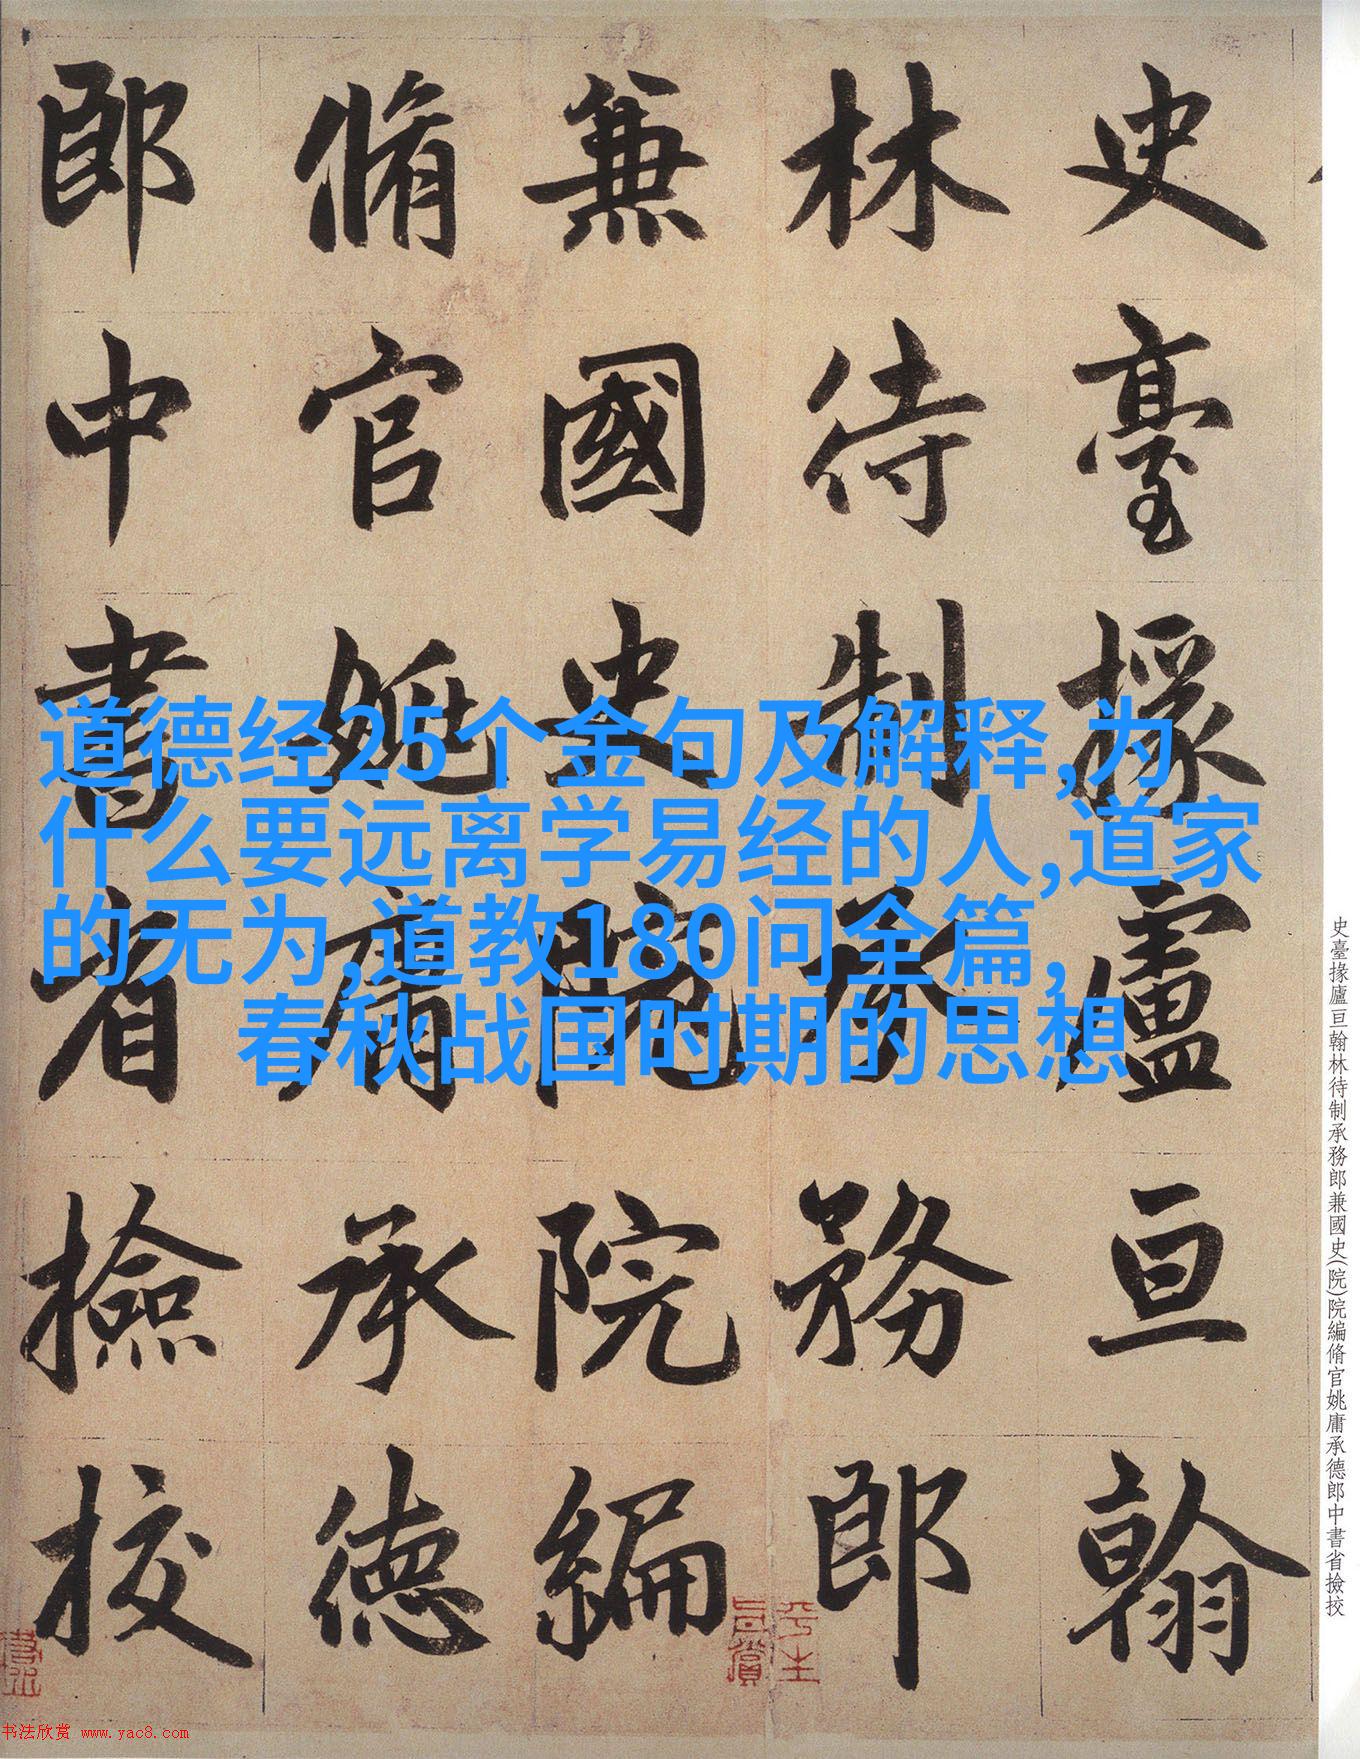 史臺掾廬亘翰
林待制承務郎
兼國史院院編
脩官姚庸承德
郎中書省撿挍
道德经25个金句及解释,为
什么要远离学易经的人,道家
的无为,道教180问全篇,
春秋战国时期的思想
史臺掾廬亘翰林待制承務郎兼國史(院)院編脩官姚庸承德郎中書省撿挍
书法欣赏 www.yac8.com